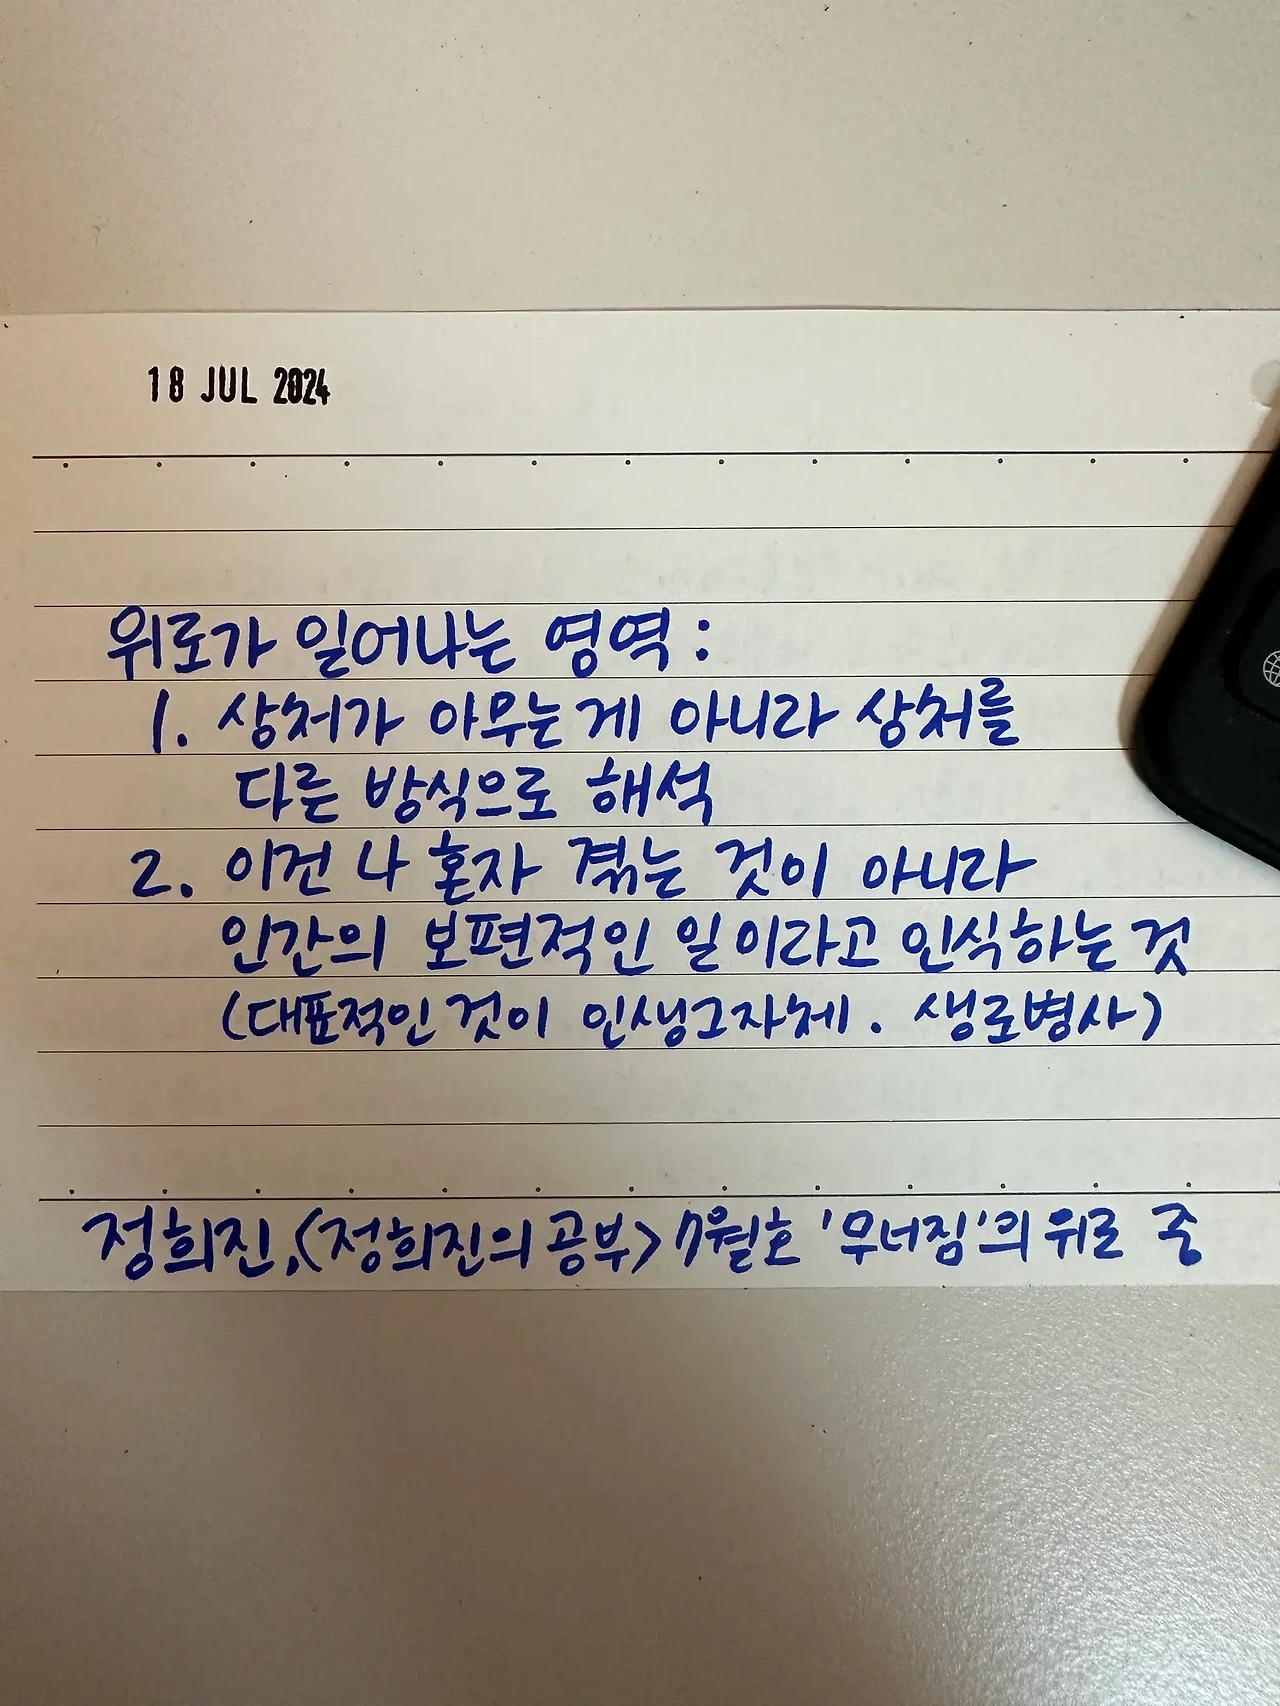 18 JUL 2024
위로가 일어나는 영역 :
1. 상처가 아무는 게 아니라 상처를
다른 방식으로 해석
2. 이건 나 혼자 겪는 것이 아니라
인간의 보편적인 일이라고 인식하는 것
(대표적인 것이 인생그자체. 생로병사)
정희진, <정희진의 공부> 7월호 '무너짐'의 위로 중